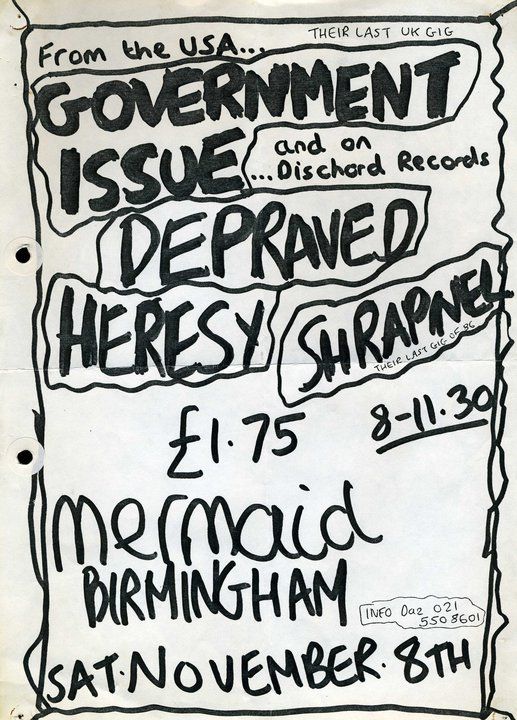 THEIR LAST UK GIG
From the USA...
GOVERNMENT
ISSUE
and on
...Dischord Records
DEPRAVED
HERESY
SHRAPNEL
THEIR LAST GIG OF 86
£1.75
8-11.30
mermaid
BIRMINGHAM
INFO Daz 021
5508601
SAT. NOVEMBER. 8TH